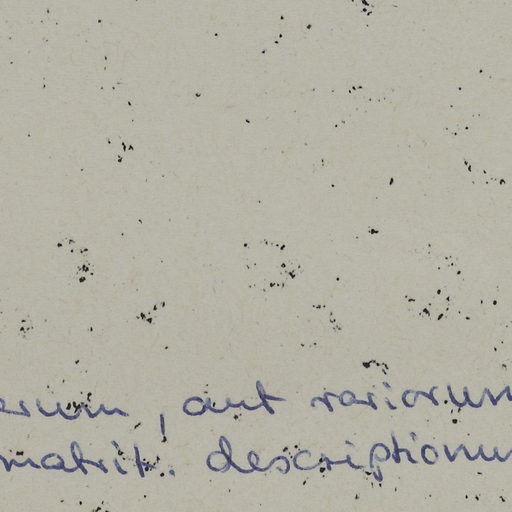 erum, aut rariorum
matrit. descriptionum